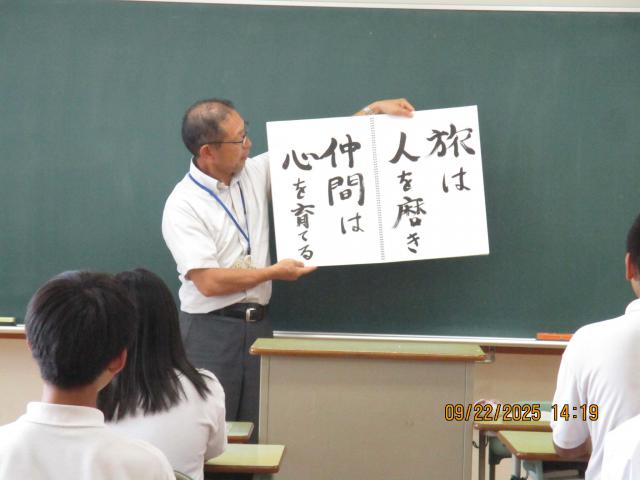 旅は
人を磨き
仲間は
心を育てる
09/22/2025 14:19